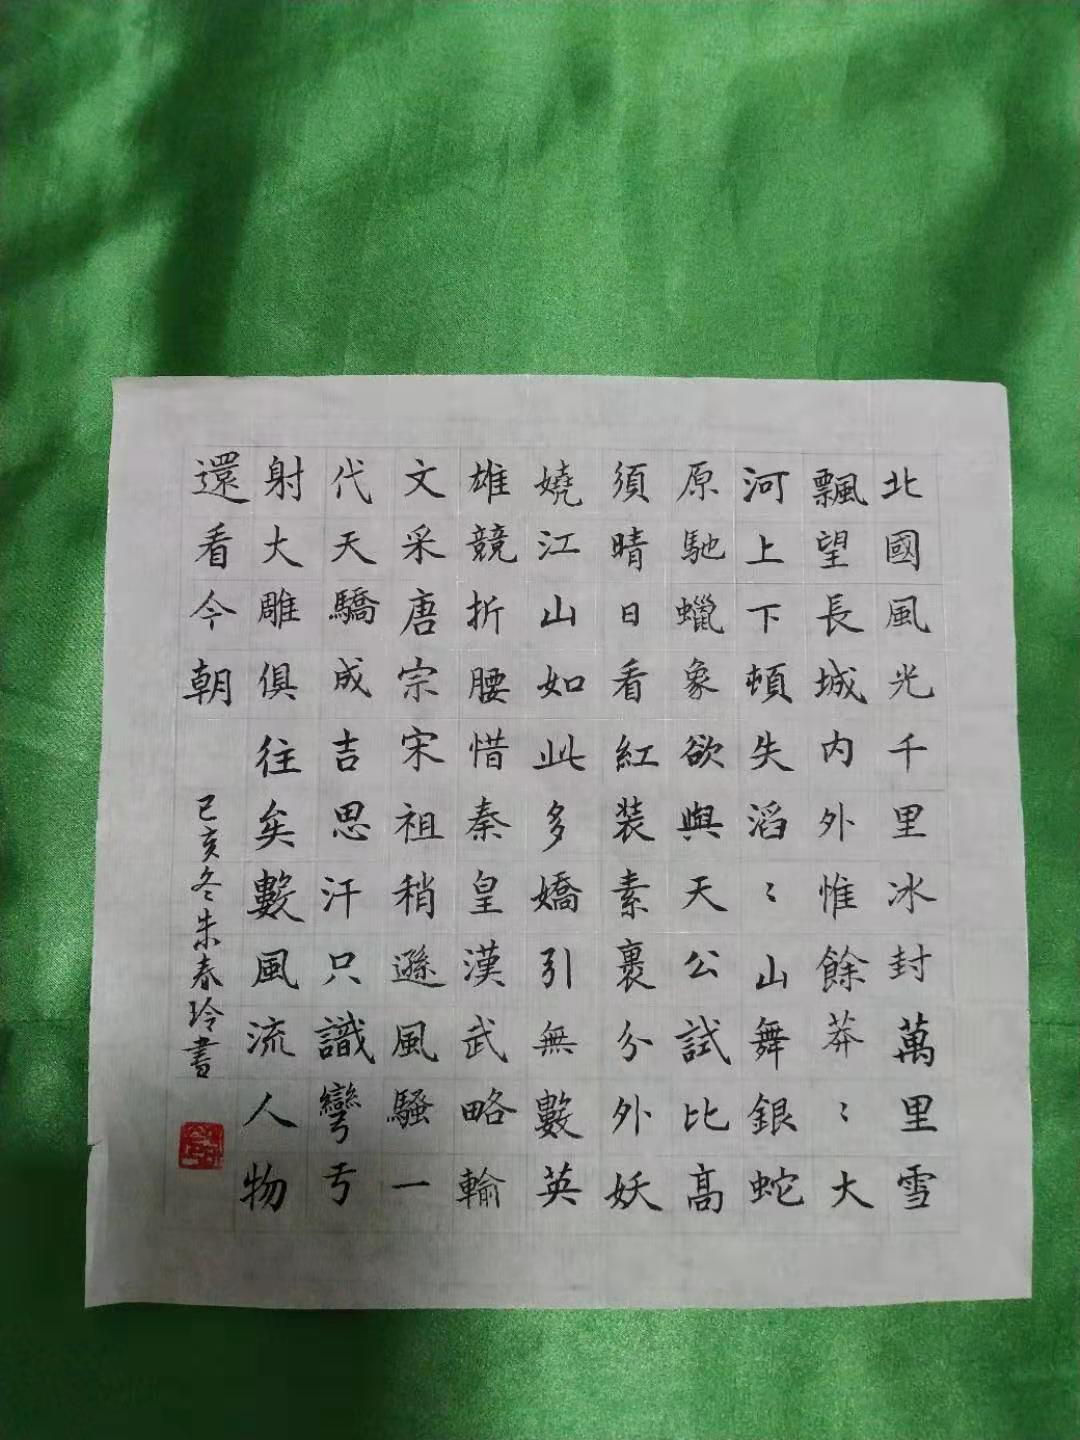 北國風光千里冰封萬里雪
飄望長城内外惟餘莽〻大
河上下頓失滔〻山舞銀蛇
原馳蠟象欲與天公試比高
須晴日看紅装素裹分外妖
嬈江山如此多嬌引無數英
雄競折腰惜秦皇漢武略輸
文采唐宗宋祖稍遜風騷一
代天驕成吉思汗只識彎弓
射大雕俱往矣數風流人物
還看今朝
己亥冬朱春玲書